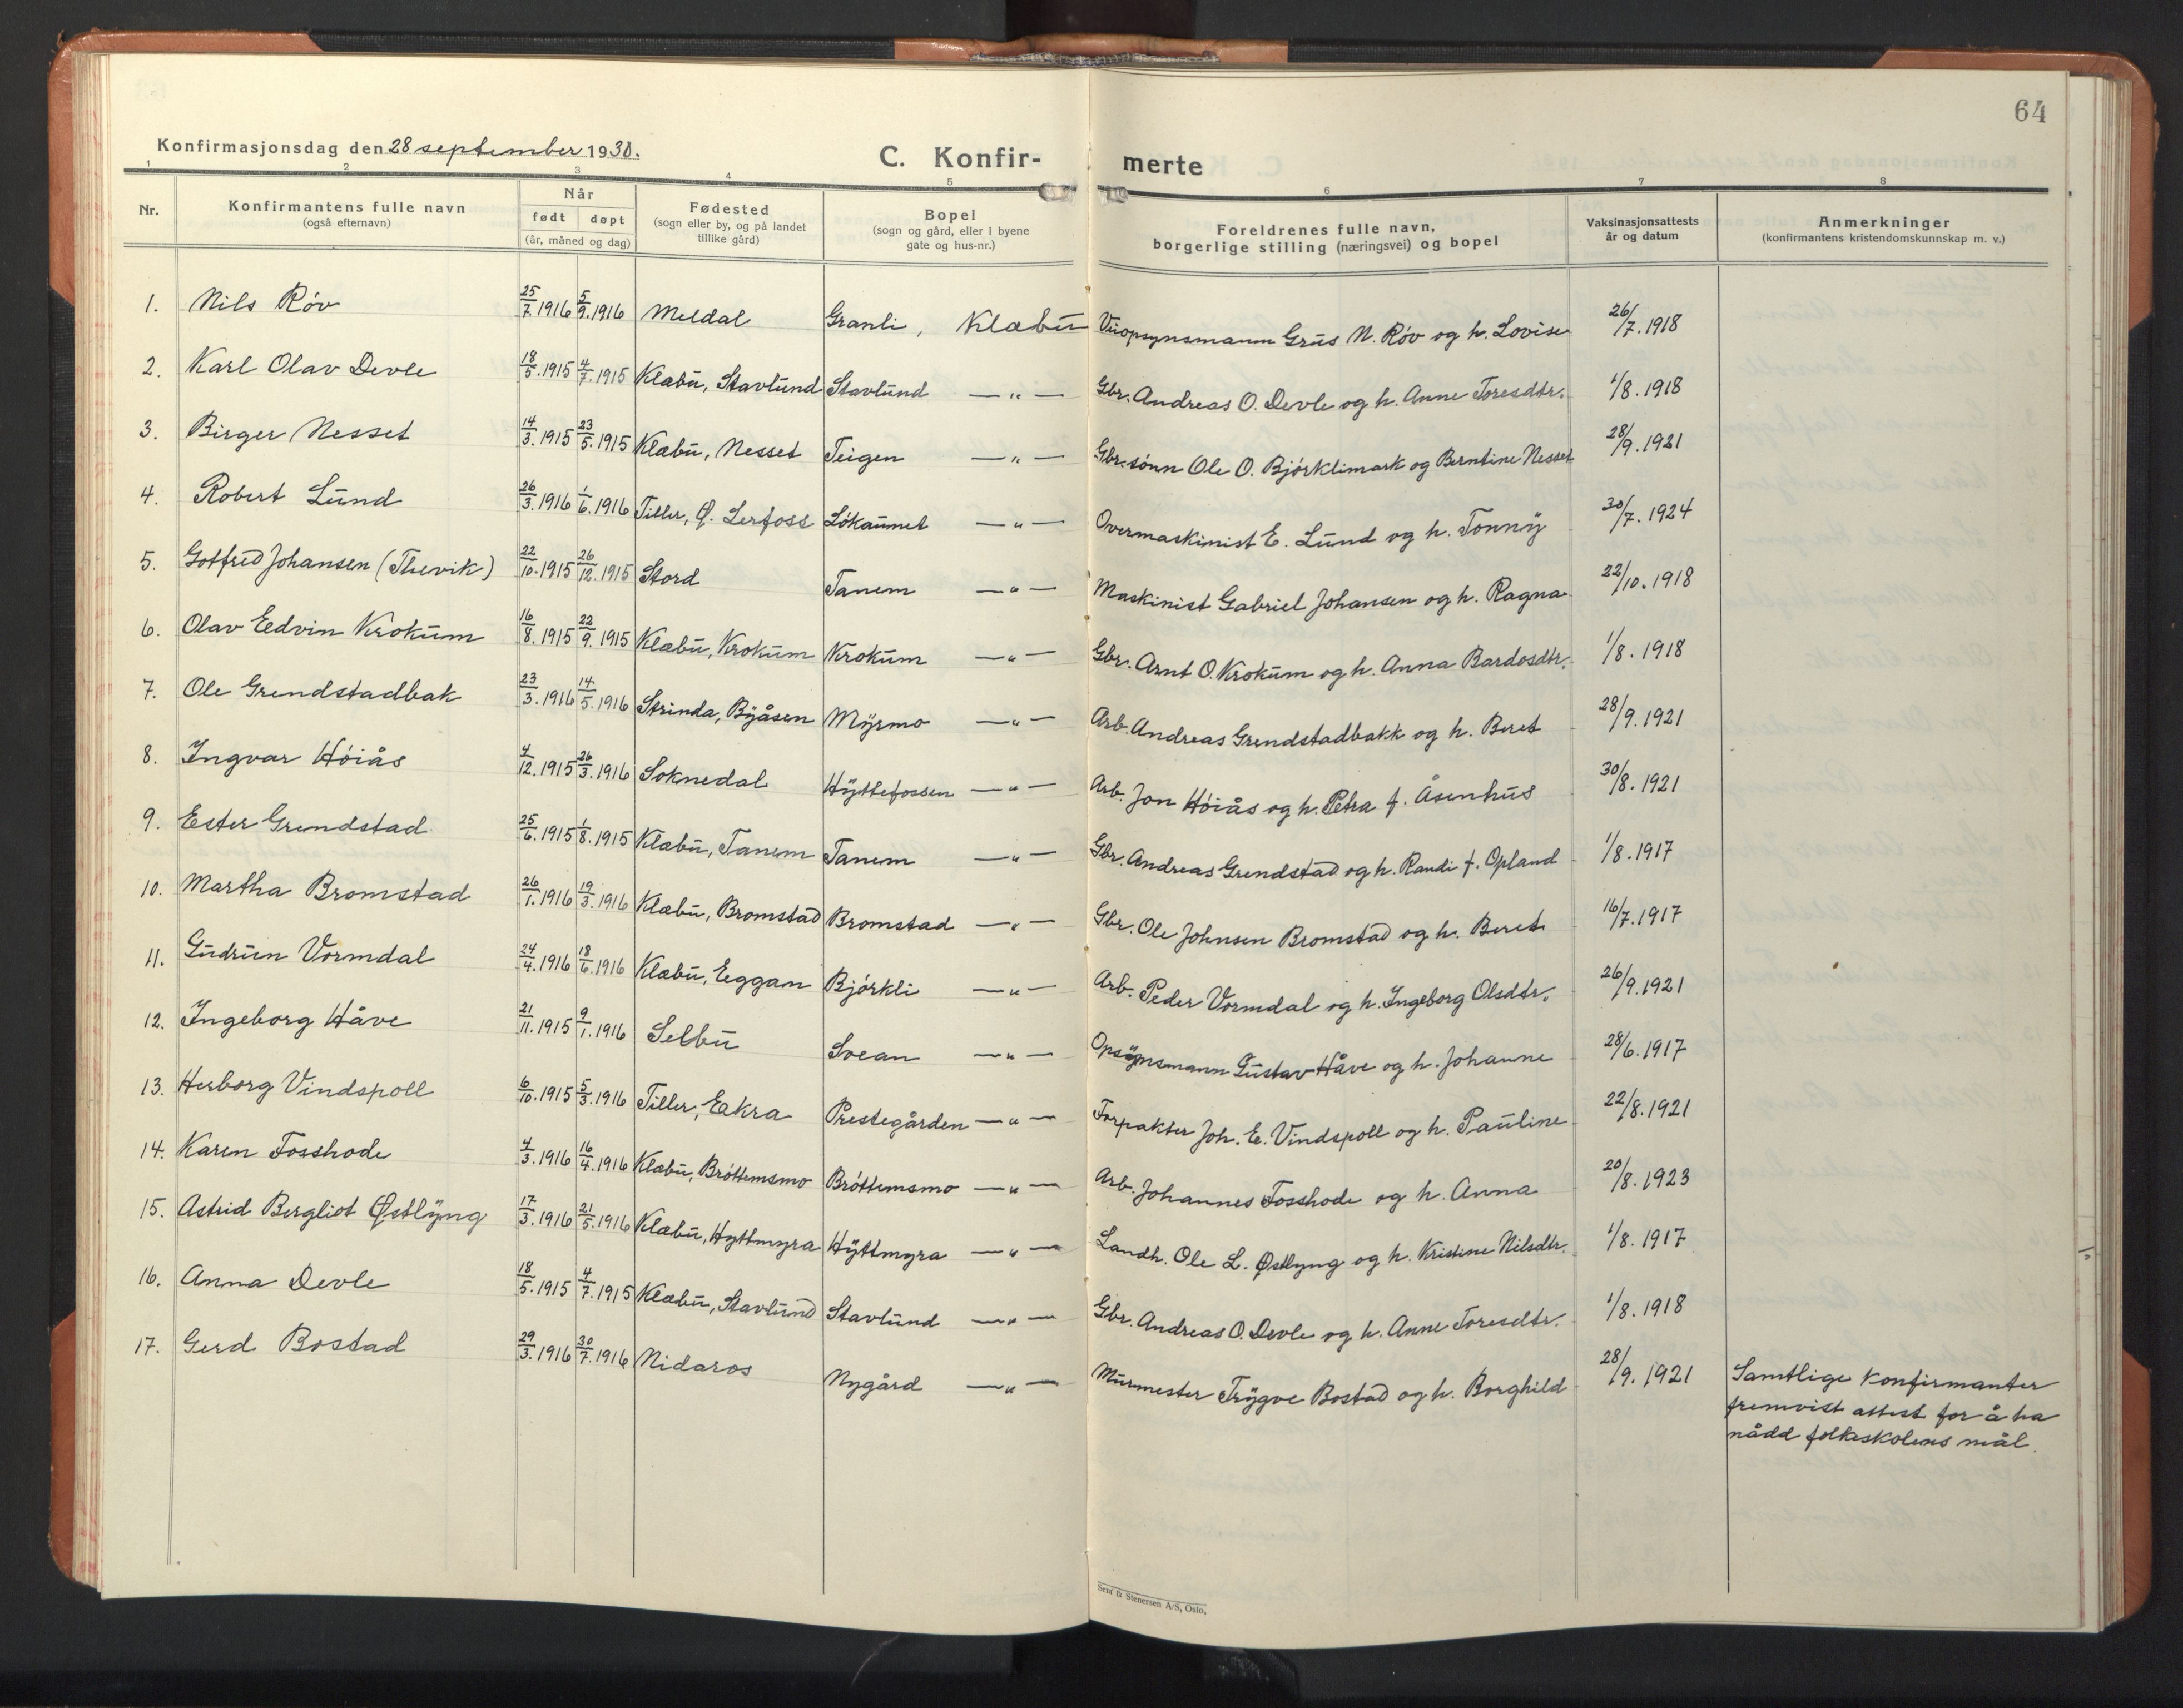 64
Konfirmasjonsdag den 28 september 1930.
C. Konfir- merte
1 2 3 4 5 6 7 8
Nr. Konfirmantens fulle navn (også efternavn) Når født døpt (år, måned og dag) Fødested (sogn eller by, og på landet tillike gård) Bopel (sogn og gård, eller i byene gate og hus-nr.) Foreldrenes fulle navn, borgerlige stilling (næringsvei) og bopel Vaksinasjonsattests år og datum Anmerkninger (konfirmantens kristendomskunnskap m. v.)
1. Nils Röv 25/7.1916 5/9.1916 Meldal Granli, Klæbu Veiopsynsmann Grus N. Röv og h. Lovise 26/7.1918
2. Karl Olav Devle 18/5.1915 4/7.1915 Klæbu, Stavlund Stavlund —"— Gbr. Andreas O. Devle og h. Anne Toresdtr. 1/8.1918
3. Birger Nesset 14/3.1915 23/5.1915 Klæbu, Nesset Teigen —"— Gbr.sönn Ole O. Björklimark og Berntine Nesset 28/9.1921
4. Robert Lund 26/3.1916 1/6.1916 Tiller, Ø. Lerfoss Lökaunet —"— Overmaskinist E. Lund og h. Tonny 30/7.1924
5. Gotfred Johansen (Thevik) 22/10.1915 26/12.1915 Stord Tanem —"— Maskinist Gabriel Johansen og h. Ragna 22/10.1918
6. Olav Edvin Krokum 16/8.1915 22/9.1915 Klæbu, Krokum Krokum —"— Gbr. Arnt O. Krokum og h. Anna Bardosdtr. 1/8.1918
7. Ole Grendstadbak 23/3.1916 14/5.1916 Strinda, Byåsen Myrmo —"— Arb. Andreas Grendstadbakk og h. Beret 28/9.1921
8. Ingvar Höiås 4/12.1915 26/3.1916 Soknedal Hyttefossen —"— Arb. Jon Höiås og h. Petra f. Åsenhus 30/8.1921
9. Ester Grendstad 25/6.1915 1/8.1915 Klæbu, Tanem Tanem —"— Gbr. Andreas Grendstad og h. Randi f. Opland 1/8.1917
10. Martha Bromstad 26/1.1916 19/3.1916 Klæbu, Bromstad Bromstad —"— Gbr. Ole Johnsen Bromstad og h. Beret 16/7.1917
11. Gudrun Vormdal 24/4.1916 18/6.1916 Klæbu, Eggan Björkli —"— Arb. Peder Vormdal og h. Ingeborg Olsdtr. 26/9.1921
12. Ingeborg Håve 21/11.1915 9/1.1916 Selbu Svean —"— Opsynsmann Gustav Håve og h. Johanne 28/6.1917
13. Herborg Vindspoll 6/10.1915 5/3.1916 Tiller, Ekra Prestegården —"— Forpakter Joh. E. Vindspoll og h. Pauline 22/8.1921
14. Karen Fosshode 4/3.1916 16/4.1916 Klæbu, Bröttemsmo Bröttemsmo —"— Arb. Johannes Fosshode og h. Anna 20/8.1923
15. Astrid Bergliot Østlyng 17/3.1916 21/5.1916 Klæbu, Hyttmyra Hyttmyra —"— Landh. Ole L. Østlyng og h. Kristine Nilsdtr. 1/8.1917
16. Anna Devle 18/5.1915 4/7.1915 Klæbu, Stavlund Stavlund —"— Gbr. Andreas O. Devle og h. Anne Toresdtr. 1/8.1918
17. Gerd Bostad 29/3.1916 30/7.1916 Nidaros Nygård —"— Murmester Trygve Bostad og h. Borghild 28/9.1921 Samtlige konfirmanter
fremvist attest for å ha
nådd folkeskolens mål.
Sem & Stenersen A/S, Oslo.